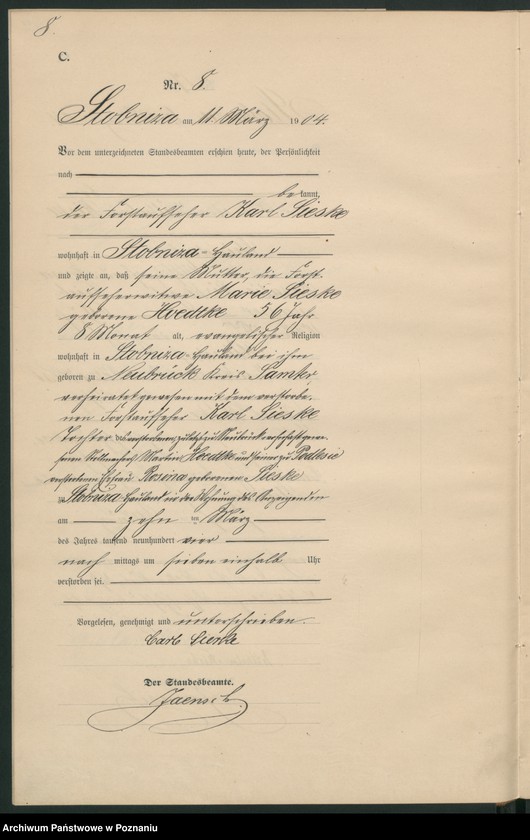 8.
C.
Nr. 8.
Stobniza am 11. März 1904.
Vor dem unterzeichneten Standesbeamten erschien heute, der Persönlichkeit
nach
bekannt,
der Forstaufseher Karl Sieske
wohnhaft in Stobniza-Hauland
und zeigte an, daß seine Mutter, die Forst-
aufseherwitwe Marie Sieske
geborene Hoedtke 56 Jahr
8 Monat alt, evangelischer Religion
wohnhaft in Stobniza-Hauland bei ihm
geboren zu Neubrück Kreis Samter,
verheiratet gewesen mit dem verstorbe-
nen Forstaufseher Karl Sieske
Tochter des verstorbenen zuletzt zu Neubrück wohnhaft gewe-
senen Martin Hoedtke und seiner zu Podlesie
verstorbenen Ehefrau Rosina geborenen Sieske
zu Stobniza Hauland in der Wohnung des Anzeigenden
am zehn ten März
des Jahres tausend neunhundert vier
nach mittags um sieben einhalb Uhr
verstorben sei.
Vorgelesen, genehmigt und unterschrieben.
Carl Sieske
Der Standesbeamte.
Jaensch
Archiwum Państwowe w Poznaniu